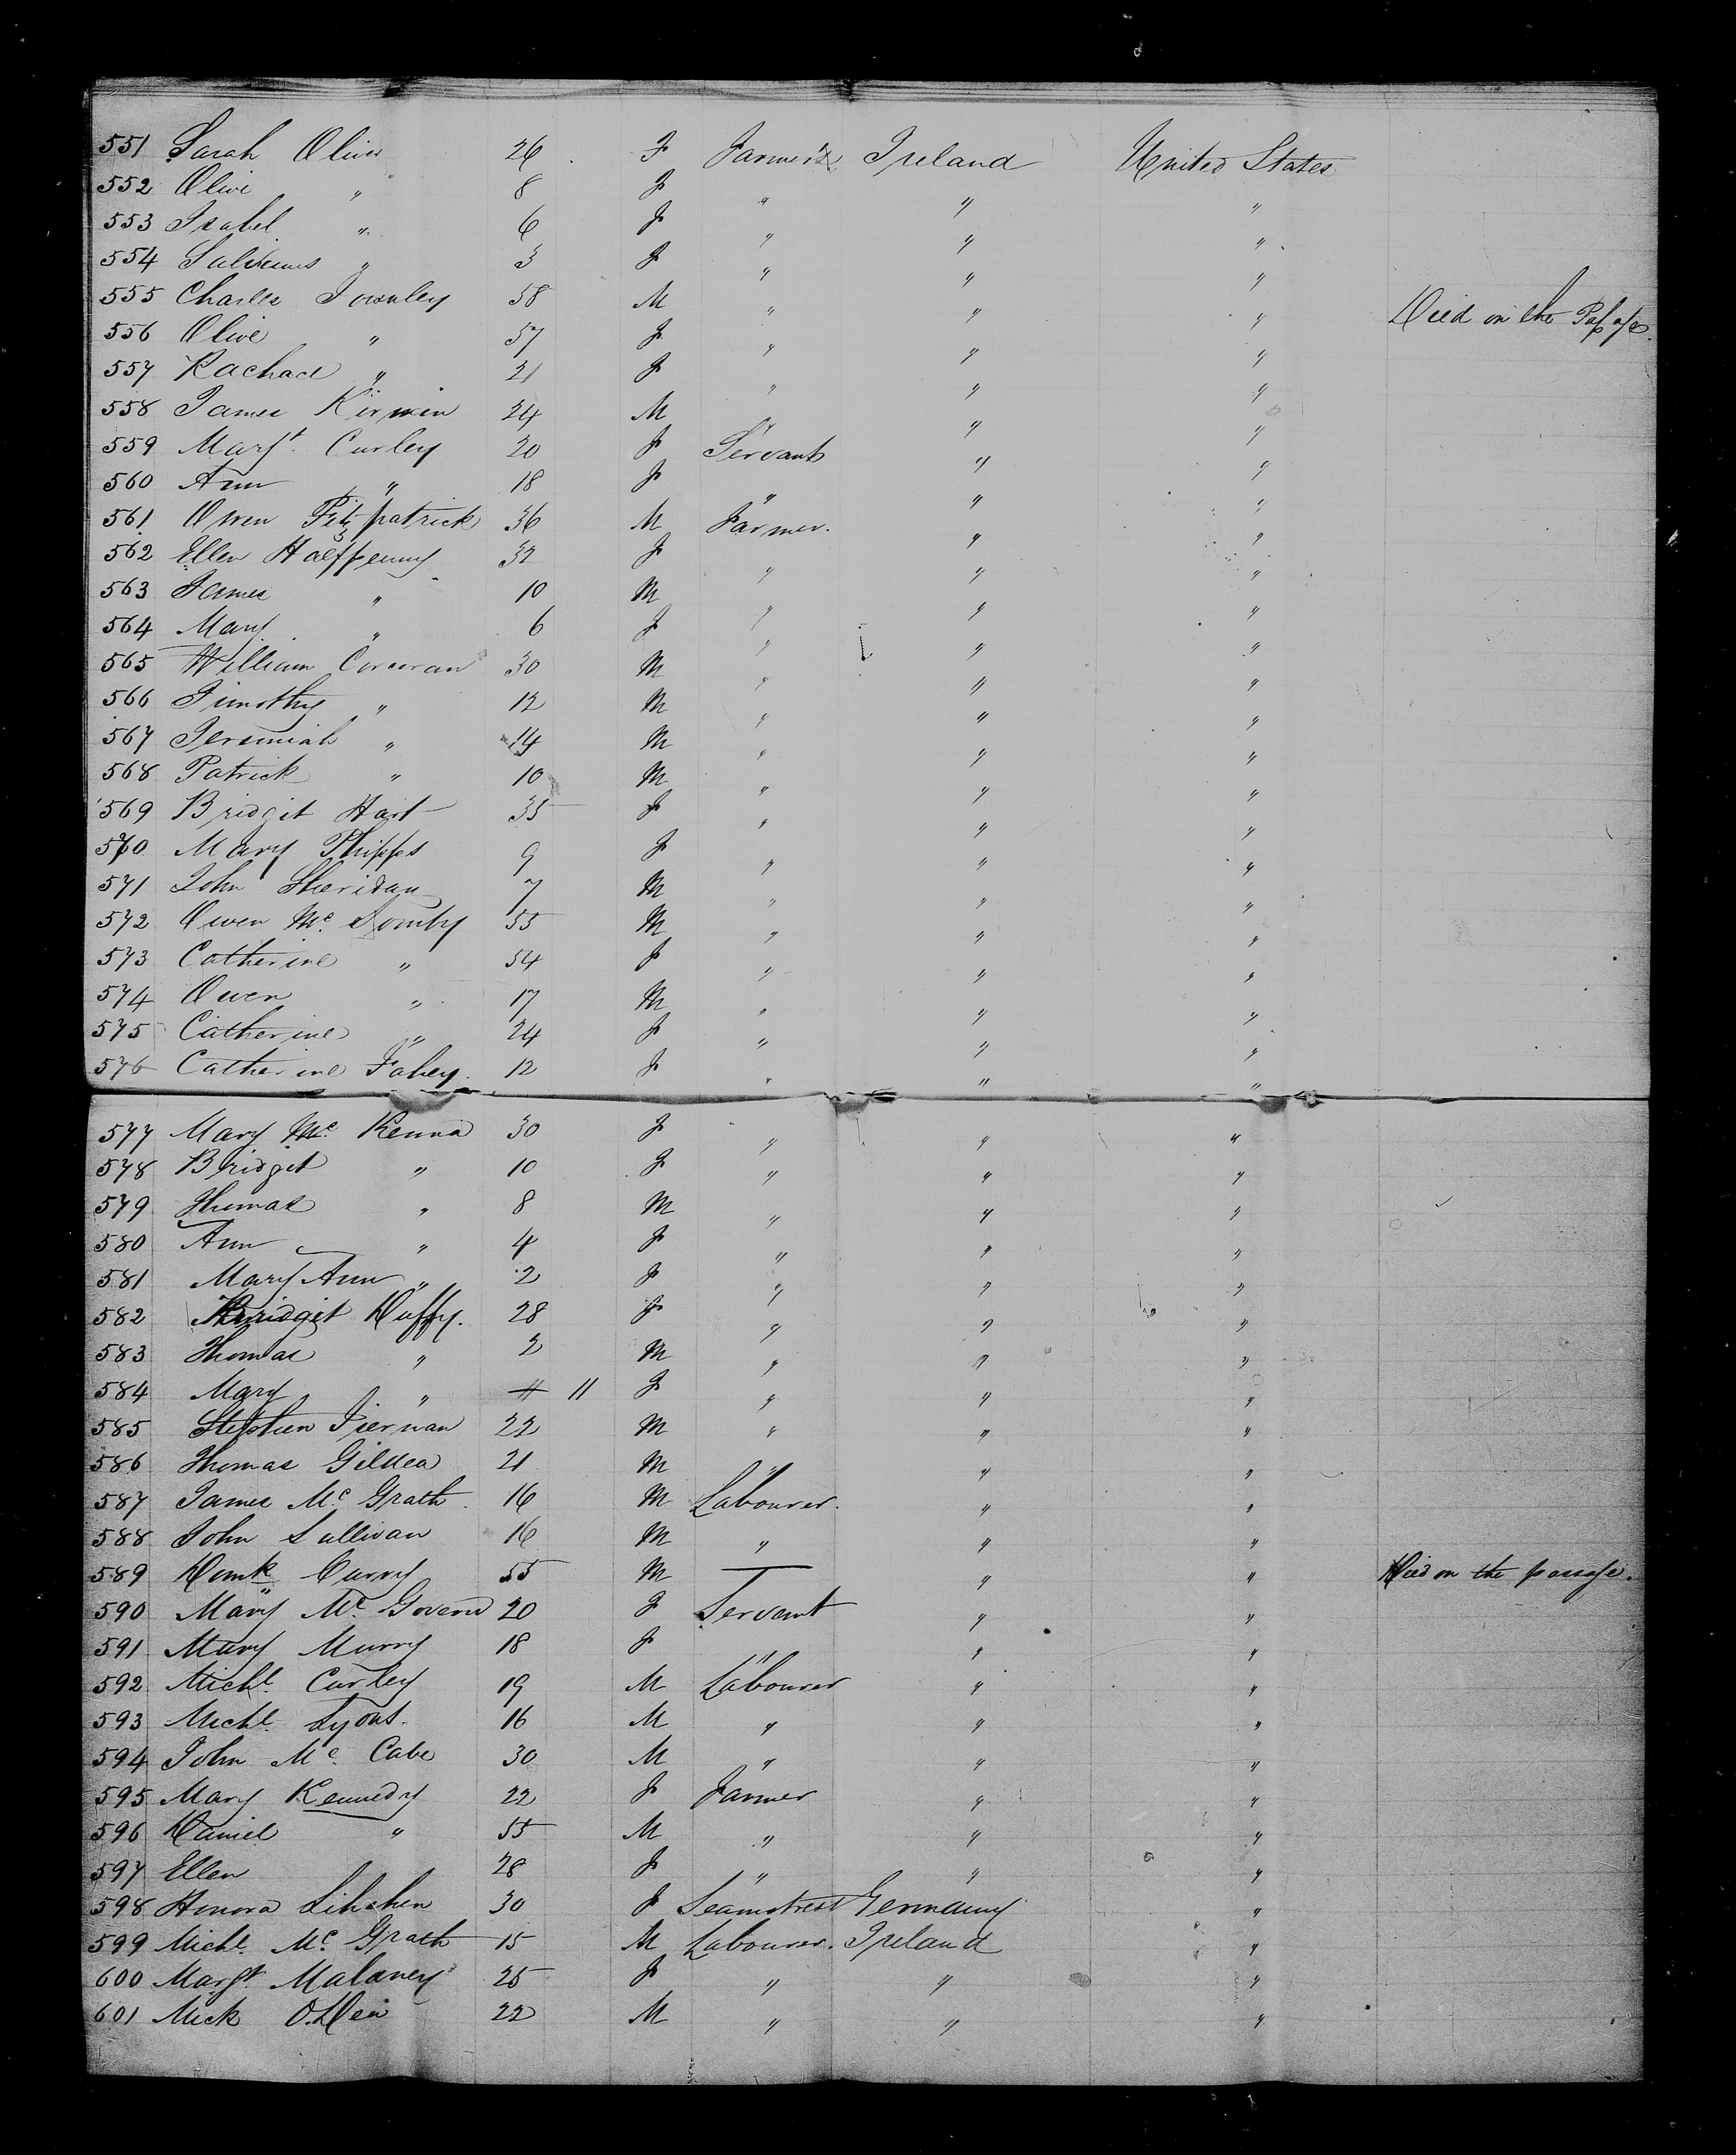 551 Sarah Oliver 26 F Farmer Ireland United States
552 Olive " 8 F " " "
553 Isabel " 6 F " " "
554 " 3 F " " "
555 Charles Townley 58 M " " " Died on the Passage.
556 Olive " 57 F " " "
557 Rachael " 21 F " " "
558 James Kirwin 24 M " " "
559 Margt. Curley 20 F Servant " "
560 Ann " 18 F " " "
561 Owen Fitzpatrick 36 M Farmer. " "
562 Ellen Halfpenny 32 F " " "
563 James " 10 M " " "
564 Mary " 6 F " " "
565 William Corcoran 30 M " " "
566 Timothy " 12 M " " "
567 Jeremiah " 14 M " " "
568 Patrick " 10 M " " "
569 Bridgit Hart 35 F " " "
570 Mary Phipps 9 F " " "
571 John Sheridan 7 M " " "
572 Owen Mc 55 M " " "
573 Catherine " 54 F " " "
574 Owen " 17 M " " "
575 Catherine " 24 F " " "
576 Catherine Fahey. 12 F " " "
577 Mary Mc Kenna 30 F " " "
578 Bridget " 10 F " " "
579 Thomas " 8 M " " "
580 Ann " 4 F " " "
581 Mary Ann " 2 F " " "
582 Bridget Duffy. 28 F " " "
583 Thomas " 2 M " " "
584 Mary " 11 F " " "
585 Stephen Tiernan 22 M " " "
586 Thomas Gildea 21 M " " "
587 James Mc Grath 16 M Labourer. " "
588 John Sullivan 16 M " " "
589 Domk Curry 55 M — " " Died on the passage.
590 Mary Mc Govern 20 F Servant " "
591 Mary Murry 18 F " " "
592 Michl. Curley 19 M Labourer " "
593 Michl. Lyons. 16 M " " "
594 John Mc Cabe 30 M " " "
595 Mary Kennedy 22 F Farmer " "
596 Daniel " 55 M " " "
597 Ellen 28 F " " "
598 Honora 30 F Seamstress Germany "
599 Michl. Mc Grath 15 M Labourer. Ireland "
600 Margt Maloney 25 F " " "
601 Mick O.Dea 22 M " " "